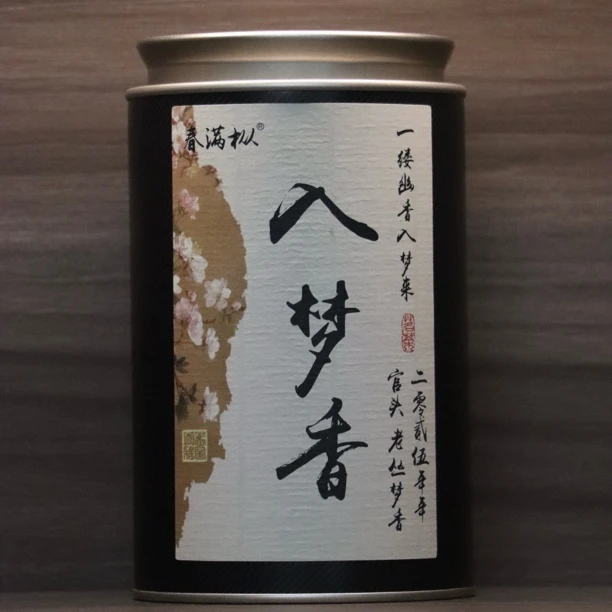 春满枞®
入梦香
一缕幽香入梦来
二零贰伍年年
官头 老丛梦香